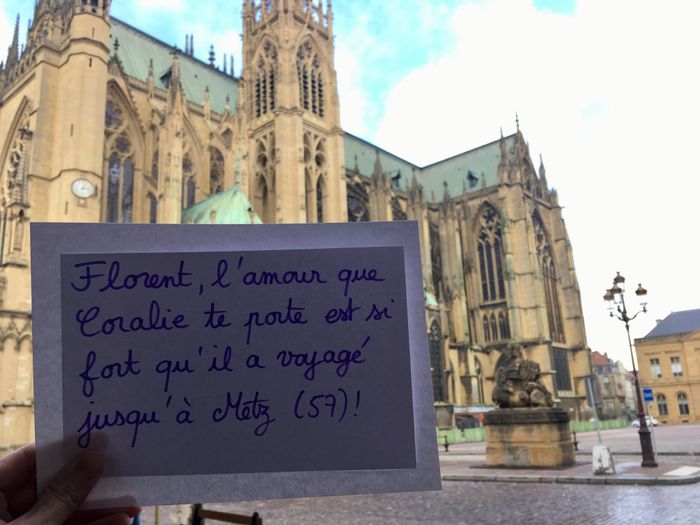 Florent, l'amour que
Coralie te porte est si
fort qu'il a voyagé
jusqu'à Metz (57)!